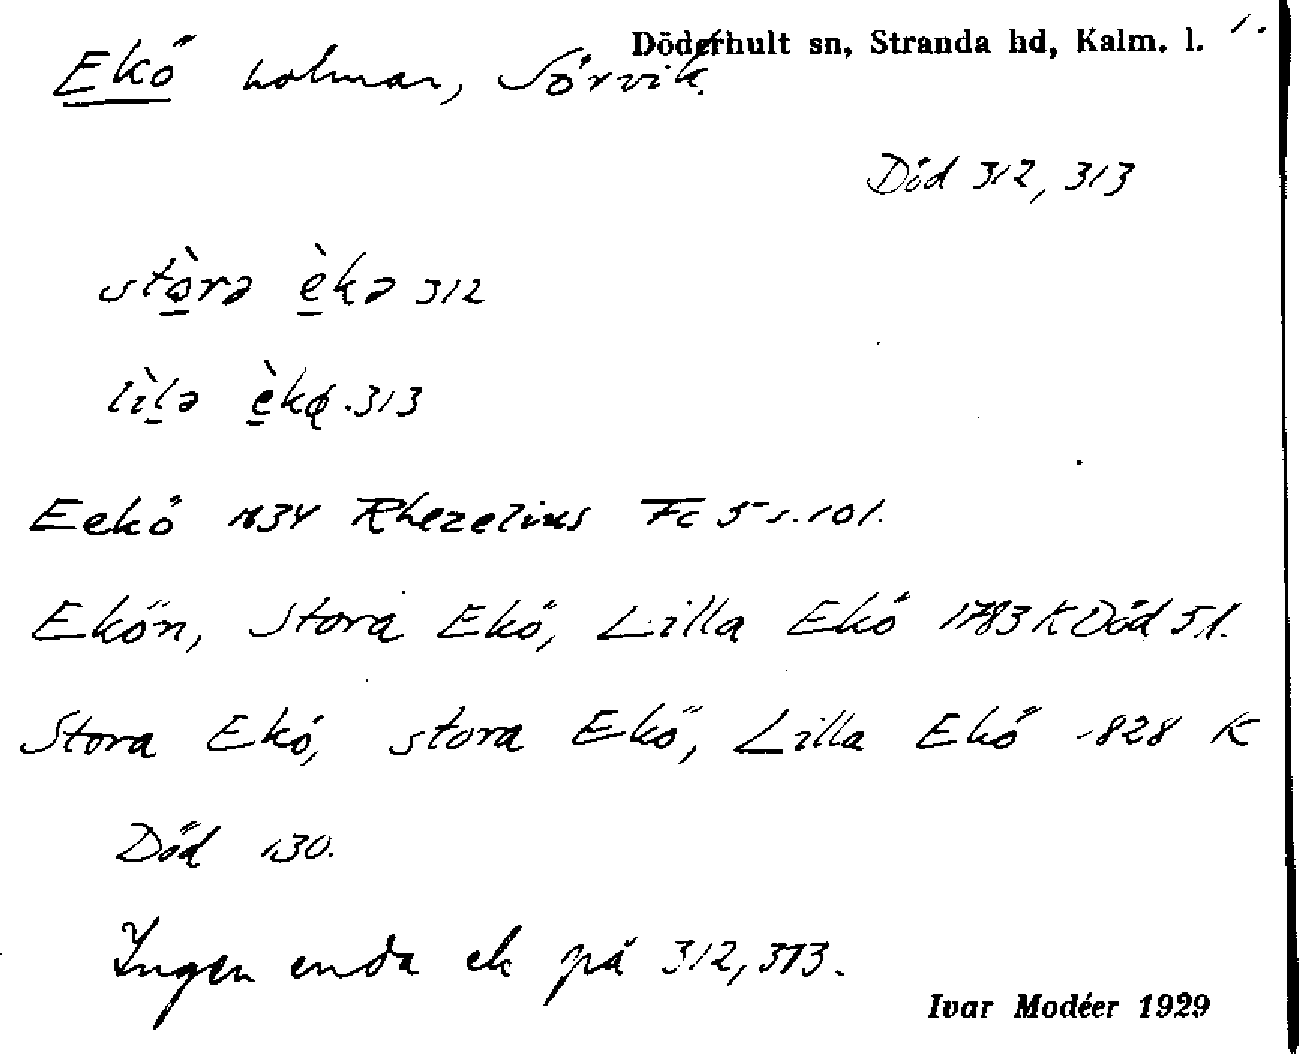 Döderhult sn, Stranda hd, Kalm. l. 1.
Ekö holmar, Sörvik.
Död 312, 313
stò̱rə è̱kə 312
lìḻə è̱kø .313
Eekö 1634 Rhezelius Fc 5 s. 101.
Ekön, Stora Ekö, Lilla Ekö 1783 K Död 51.
Stora Ekö, stora Ekö, Lilla Ekö 1828 K
Död 130.
Ingen enda ek på 312, 313.
Ivar Modéer 1929